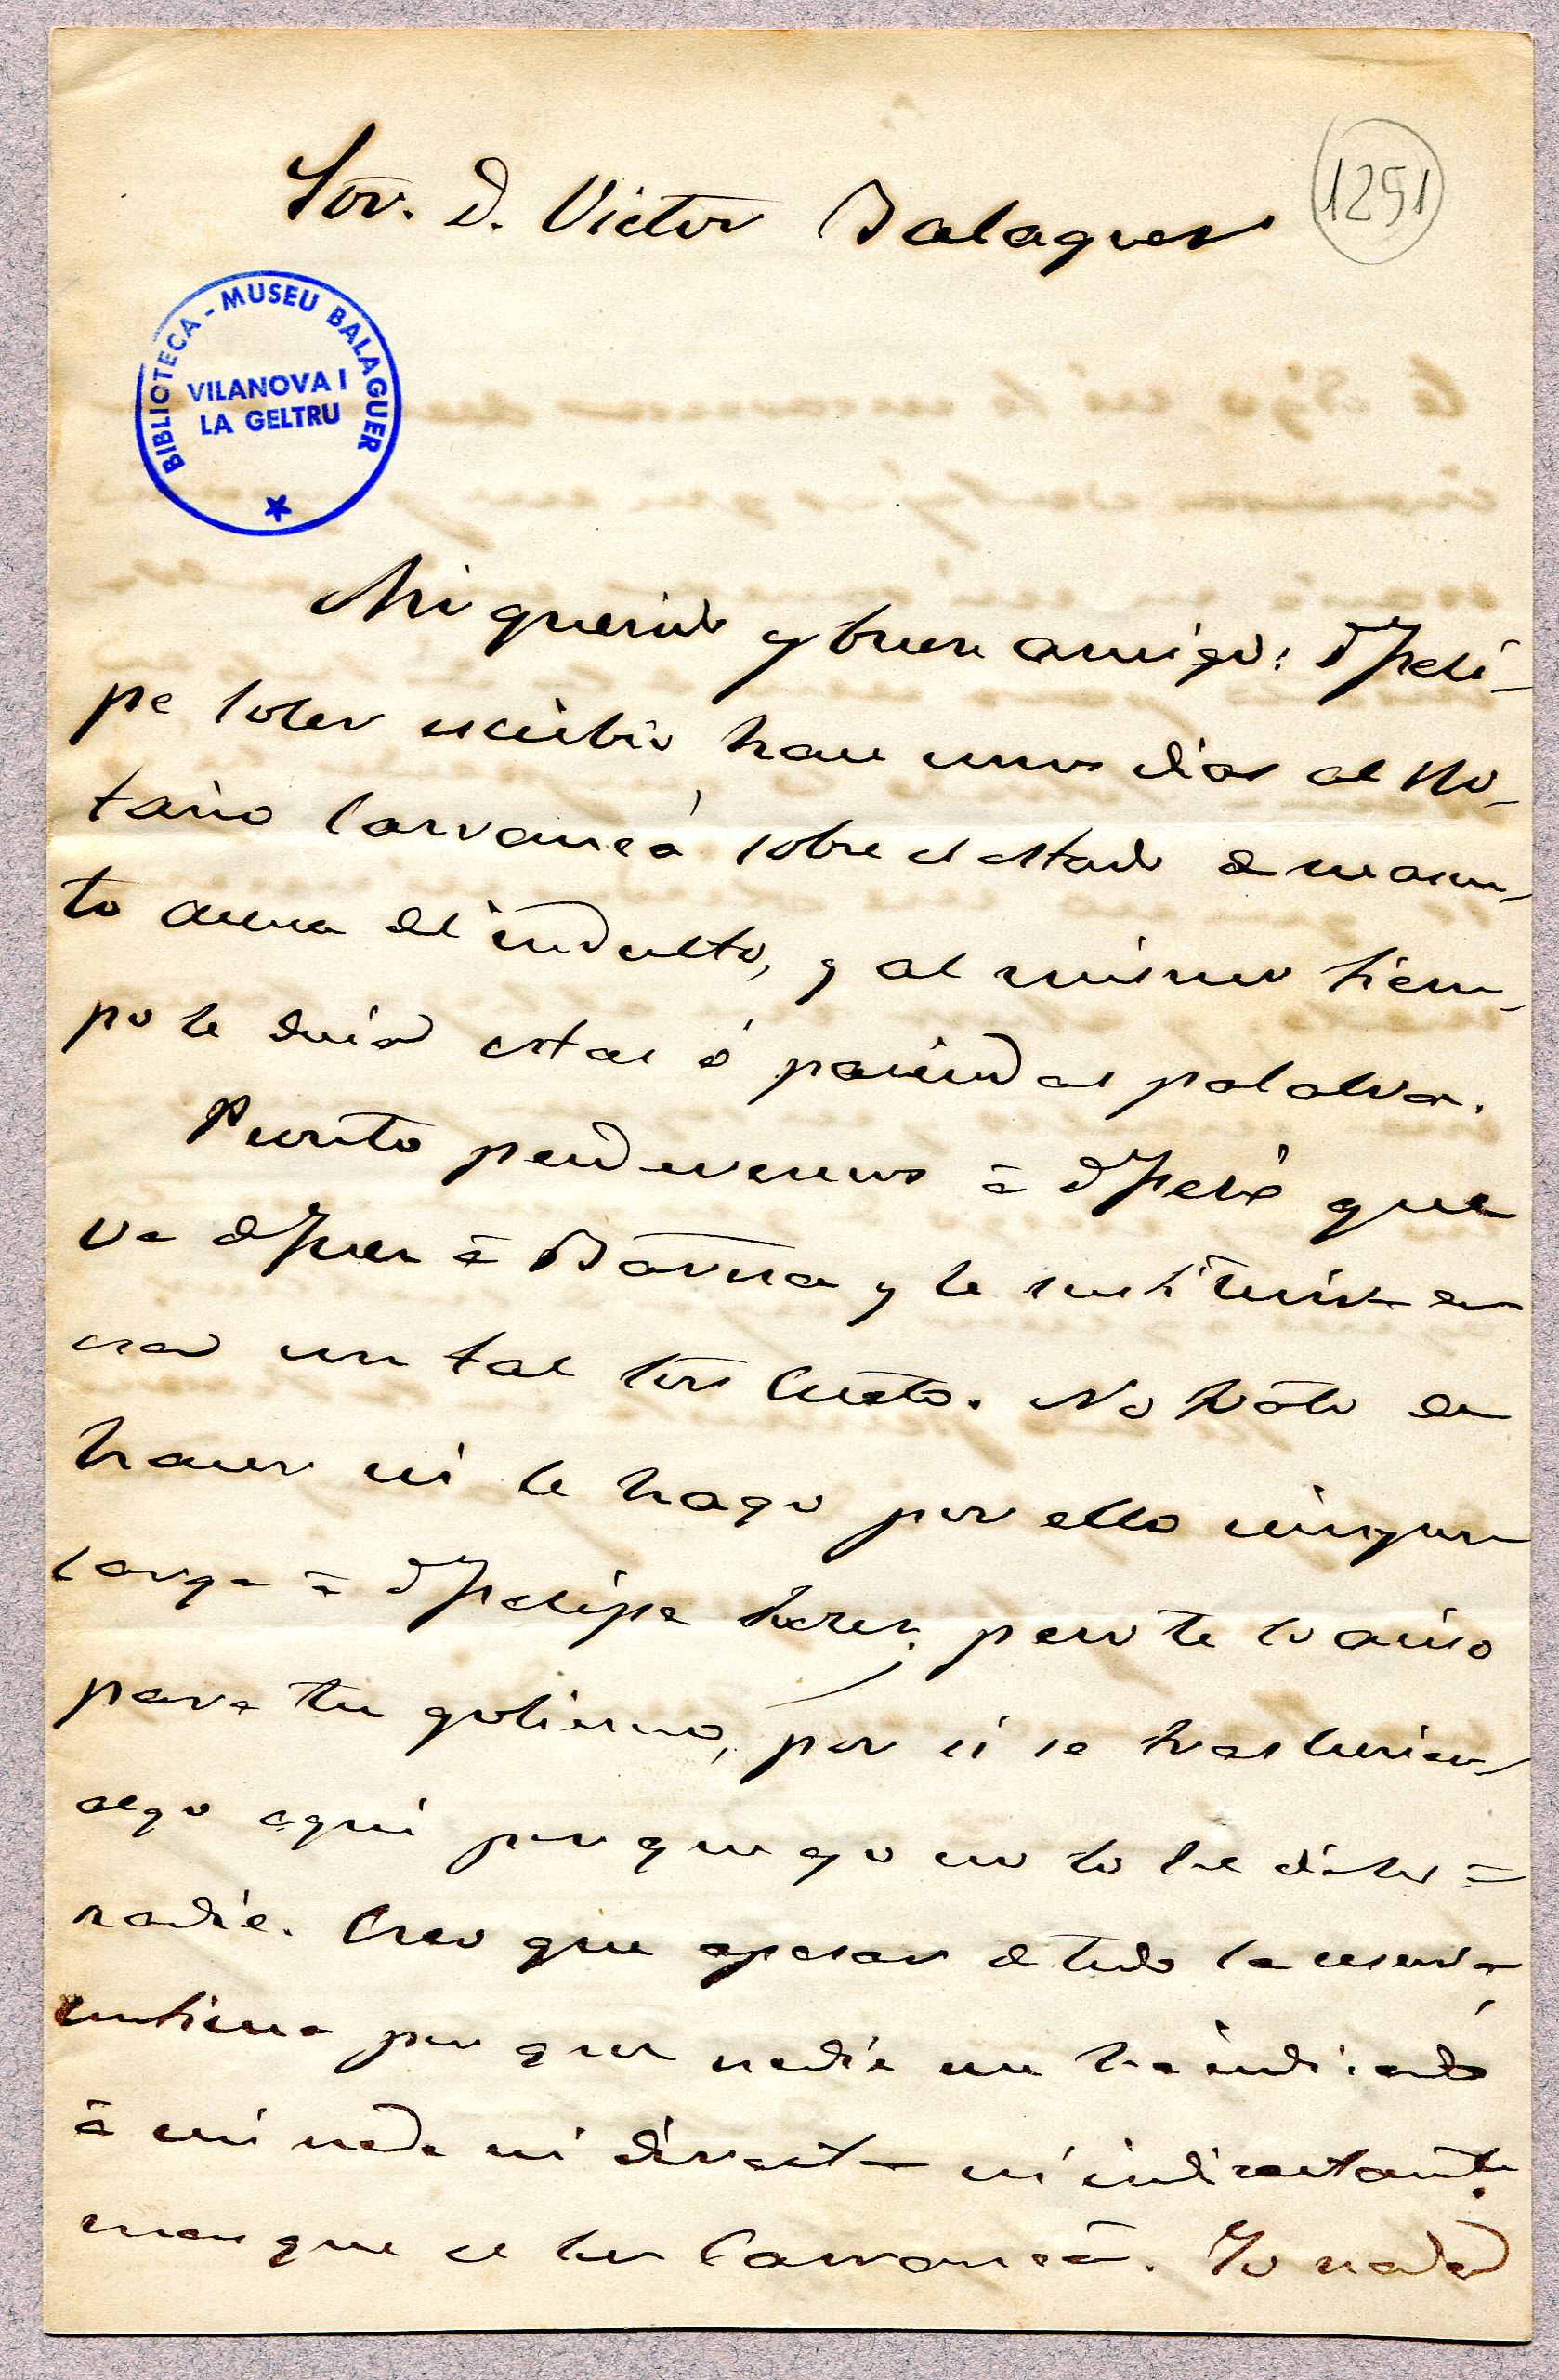 Sor. D. Victor Balaguer
1251
BIBLIOTECA - MUSEU BALAGUER
VILANOVA I
LA GELTRU
Mi querido y buen amigo: D Feli-
pe Soler escribió hace unos dias al No-
tario Carvancá sobre el estado de su asun-
to acerca del indulto, y al mismo tiem-
po le decia estas ó parecidas palabras.
Pronto perderemos á D Felipe que
va á Barna y le sustituirá en
esa un tal Sor Cueto. No trato de
hacer ni le hago por ello ningun
cargo á D Felipe Soler; pero te lo aviso
para tu gobierno, por si se trasluciera
algo aqui por que yo no lo he dicho á
nadie. Creo que apesar de todo la reserva
continua por que nadie me ha indicado
á mi nada ni directa ni indirectamte.
mas que el Sor Carvancá. Yo nada